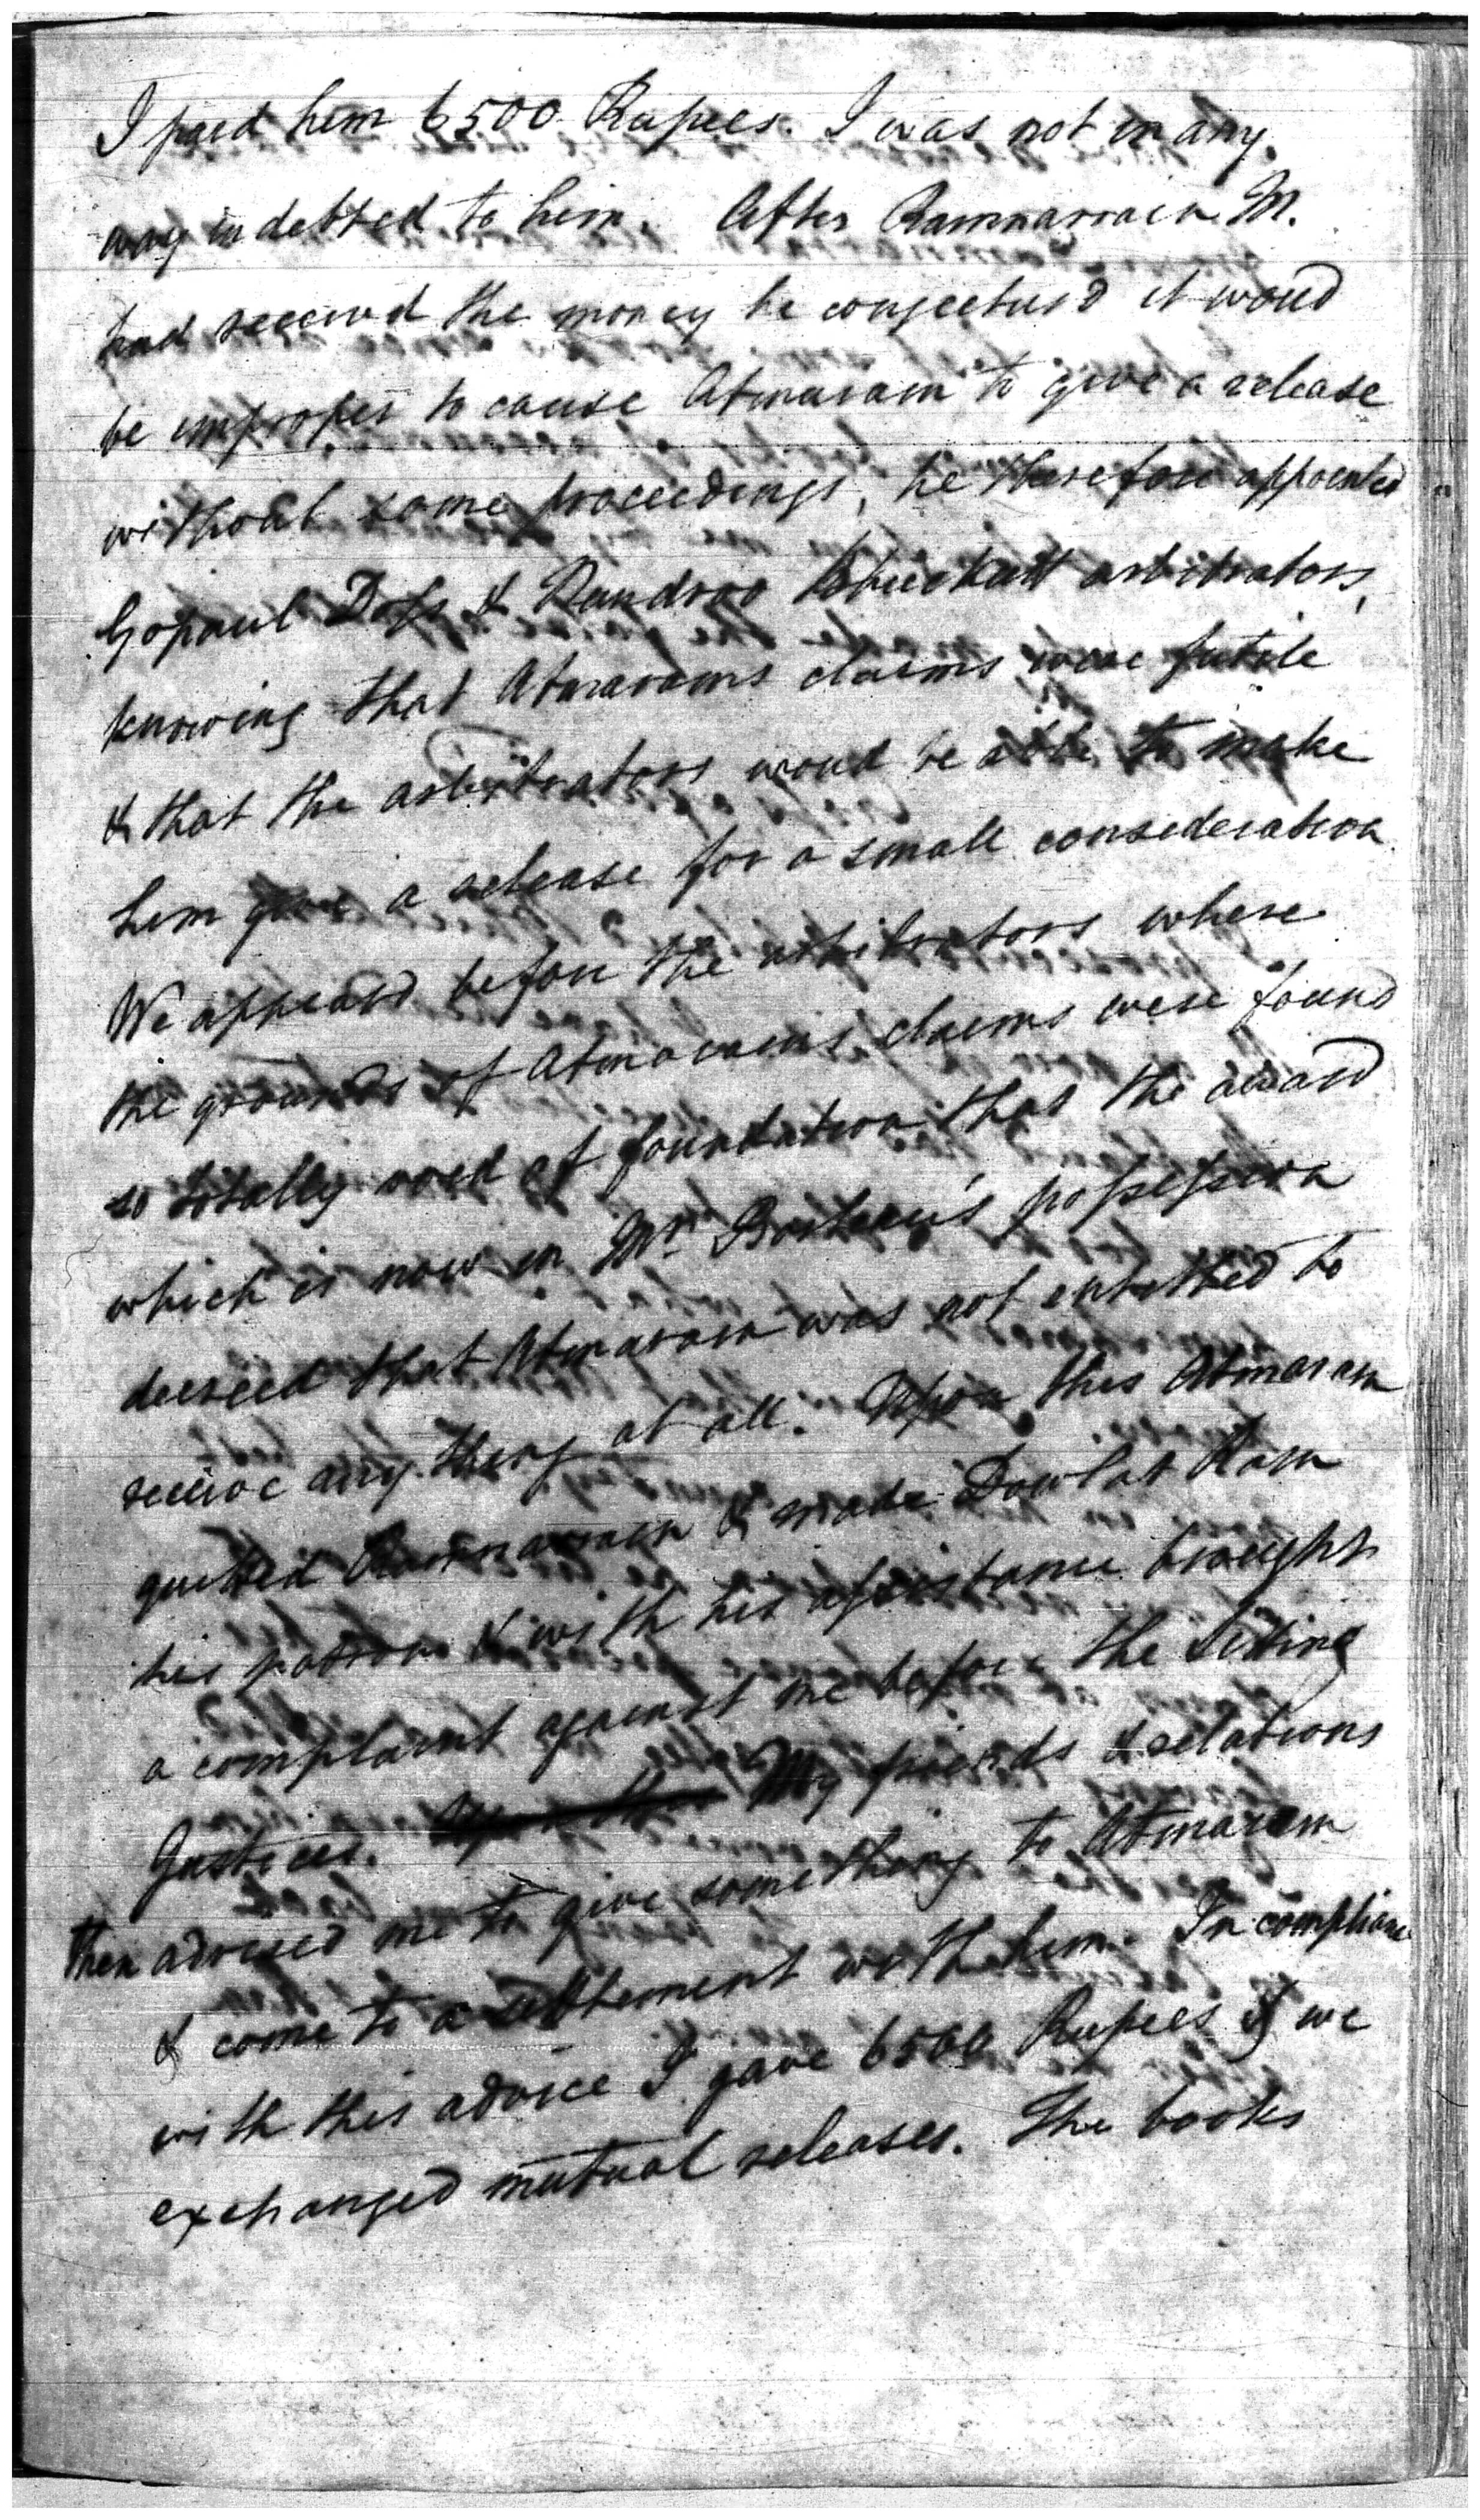 I paid him 6500 Rupees. I was not in any
way indebted to him. After Ramnarrain M.
had receivd the money he conjectur'd it woud
be improper to cause Atmaram to give a release
without some proceedings, he therefore appointed
Gopaul Doss & Rundroo arbitrators,
knowing that Atmarams claims were futile
& that the arbitrators woud be able to make
him give a release for a small consideration
We appeard before the arbitrators where
the grounds of Atmarams claims were found
so totally void of foundation that the award
which is now in Mr. possession
decreed that Atmaram was not entitled to
receive any thing at all. Upon this Atmaram
quitted Ramnarrain & made Dowlat Ram
his patron & with his assistance brought
a complaint against me before the Sitting
Justices. My friends & relations
then advised me to give something to Atmaram
& come to a settlement with him. In compliance
with this advice I gave 6500 Rupees & we
exchanged mutual releases. The books